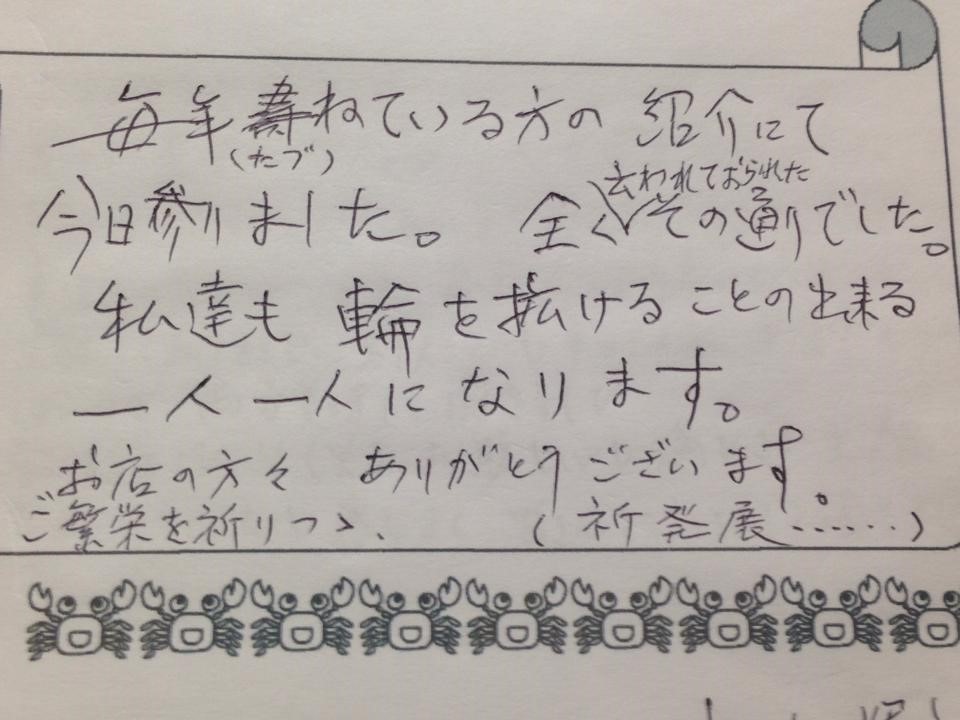 毎年尋ねている方の 紹介にて
(たづ)
今日参りました。 全く云われておられたその通りでした。
私達も 輪を拡げることの出来る
一人一人になります。
お店の方々 ありがとうございます。
ご繁栄を祈りつゝ、 (祈発展……)